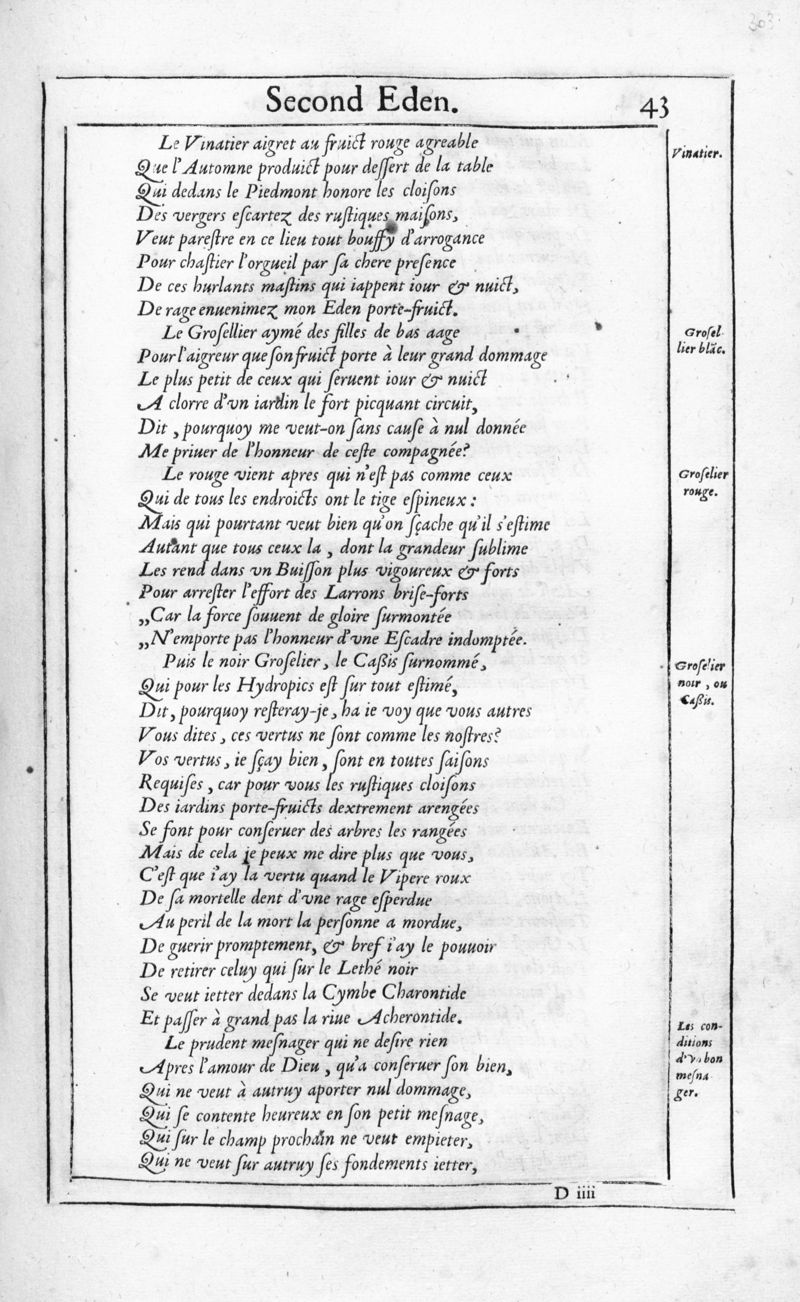 303
Second Eden. 43
Le Vinatier aigret au fruict rouge agreable
Que l'Automne produict pour deſſert de la table
Qui dedans le Piedmont honore les cloiſons
Des vergers eſcartez des ruſtiques maiſons,
Veut pareſtre en ce lieu tout bouffy d'arrogance
Pour chaſtier l'orgueil par ſa chere preſence
De ces hurlants maſtins qui iappent iour & nuict,
De rage enuenimez mon Eden porte-fruict.
Le Groſellier aymé des filles de bas aage
Pour l'aigreur que ſon fruict porte à leur grand dommage
Le plus petit de ceux qui ſeruent iour & nuict
A clorre d'vn iardin le fort picquant circuit,
Dit, pourquoy me veut-on ſans cauſe à nul donnée
Me priuer de l'honneur de ceſte compagnée?
Le rouge vient apres qui n'eſt pas comme ceux
Qui de tous les endroicts ont le tige eſpineux:
Mais qui pourtant veut bien qu'on ſçache qu'il s'eſtime
Autant que tous ceux la, dont la grandeur ſublime
Les rend dans vn Buiſſon plus vigoureux & forts
Pour arreſter l'effort des Larrons briſe-forts
„Car la force ſouuent de gloire ſurmontée
„N'emporte pas l'honneur d'vne Eſcadre indomptée.
Puis le noir Groſelier, le Caßis ſurnommé,
Qui pour les Hydropics eſt ſur tout eſtimé,
Dit, pourquoy reſteray-je, ha ie voy que vous autres
Vous dites, ces vertus ne ſont comme les noſtres?
Vos vertus, ie ſçay bien, ſont en toutes ſaiſons
Requiſes, car pour vous les ruſtiques cloiſons
Des iardins porte-fruicts dextrement arengées
Se font pour conſeruer des arbres les rangées
Mais de cela je peux me dire plus que vous,
C'eſt que i'ay la vertu quand le Vipere roux
De ſa mortelle dent d'vne rage eſperdue
Au peril de la mort la perſonne a mordue,
De guerir promptement, & bref i'ay le pouuoir
De retirer celuy qui ſur le Lethé noir
Se veut ietter dedans la Cymbe Charontide
Et paſſer à grand pas la riue Acherontide.
Le prudent meſnager qui ne deſire rien
Apres l'amour de Dieu, qu'a conſeruer ſon bien,
Qui ne veut à autruy aporter nul dommage,
Qui ſe contente heureux en ſon petit meſnage,
Qui ſur le champ prochain ne veut empieter,
Qui ne veut ſur autruy ſes fondements ietter,
D iiii
Vinatier.
Groſel
lier blãc.
Groſelier
rouge.
Groſelier
noir, ou
Caßis.
Les con-
ditions
d'vn bon
meſna
ger.